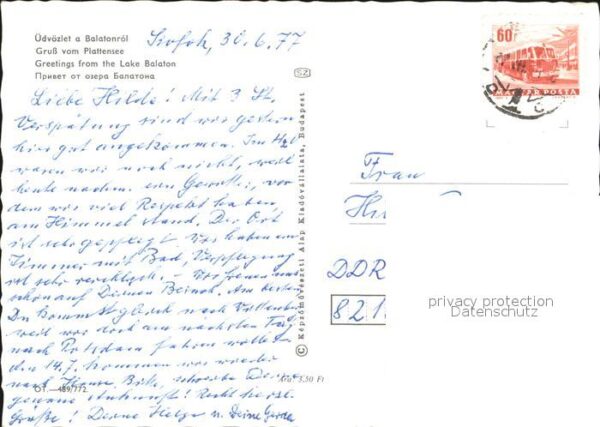 Üdvözlet a Balatonról
Gruß vom Plattensee
Greetings from the Lake Balaton
Привет от озера Балатона
Siofok, 30.6.77
Liebe Hilde! Mit 3 St.
Verspätung sind wir gestern
hier gut angekommen. Im H2O
waren wir noch nicht, weil
heute nachm. ein Gewitter, vor
dem wir viel Respekt haben,
am Himmel stand. Der Ort
ist sehr gepflegt. Wir haben ein
Zimmer mit Bad, Verpflegung
ist sehr reichlich. – Wir freuen uns
schon auf Deinen Besuch. Am besten
Du kommst gleich nach
weil wir doch am nächsten Tag
nach Potsdam fahren wollen
den 14.7. kommen wir wieder
nach Hause. Bitte, schreibe Deine
genaue Ankunft! Recht herzl.
Grüße! Deine Helga u. Deine Gerda
SZ
© Képzőművészeti Alap Kiadóvállalata, Budapest
60f
MAGYAR POSTA
Frau
DDR
821
privacy protection
Datenschutz
Ára: 3,50 Ft
OT.—489/772